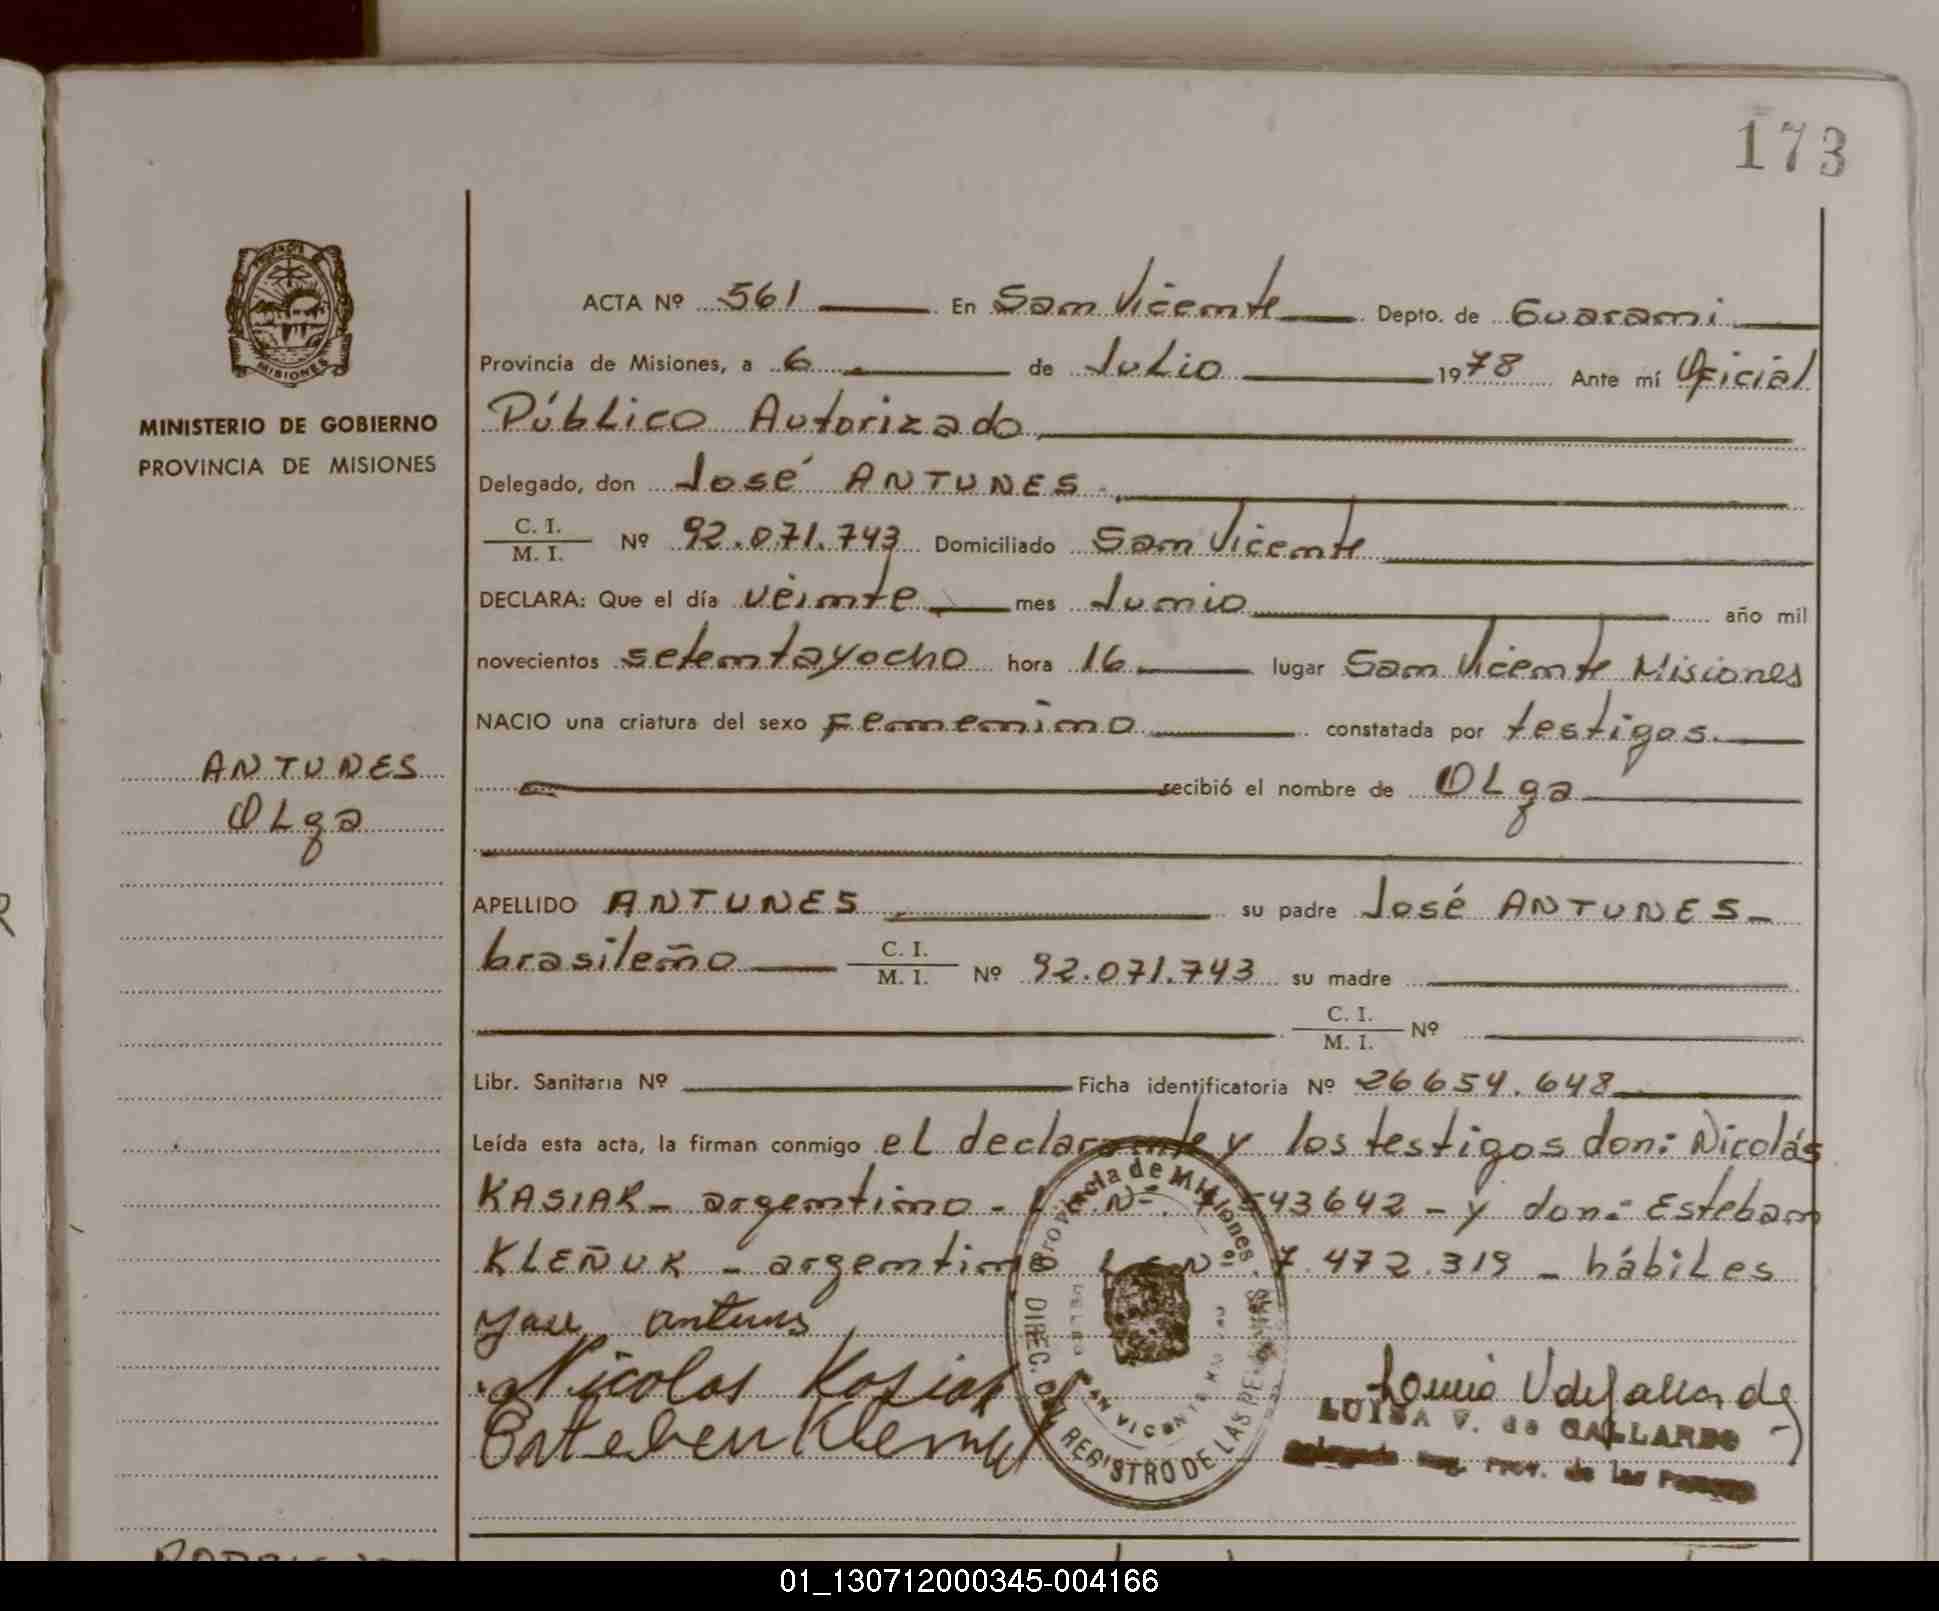 173
PROVINCIA DE MISIONES
MINISTERIO DE GOBIERNO
PROVINCIA DE MISIONES
ANTUNES
Olga
ACTA Nº 561 En San Vicente Depto. de Guaraní
Provincia de Misiones, a 6 de Julio 1978 Ante mí Oficial
Público Autorizado
Delegado, don José ANTUNES
C. I. / M. I. Nº 92.071.743 Domiciliado San Vicente
DECLARA: Que el día veinte mes Junio año mil
novecientos setentayocho hora 16 lugar San Vicente Misiones
NACIO una criatura del sexo femenino constatada por testigos
recibió el nombre de Olga
APELLIDO ANTUNES su padre José ANTUNES
brasileño C. I. / M. I. Nº 92.071.743 su madre
C. I. / M. I. Nº
Libr. Sanitaria Nº Ficha identificatoria Nº 26654.648
Leída esta acta, la firman conmigo el declarante y los testigos don: Nicolás
KASIAK - argentino - Nº 7.543642 - y don: Esteban
KLEÑUK - argentino Nº 7.472.319 - hábiles
Jose antunes
Nicolas Kasiak
Esteben
LUISA V. de GALLARDO
Delegada Reg. Prov. de las Personas
Provincia de Misiones
DIREC. DEL REGISTRO DE LAS PERSONAS
SAN VICENTE
01_130712000345-004166